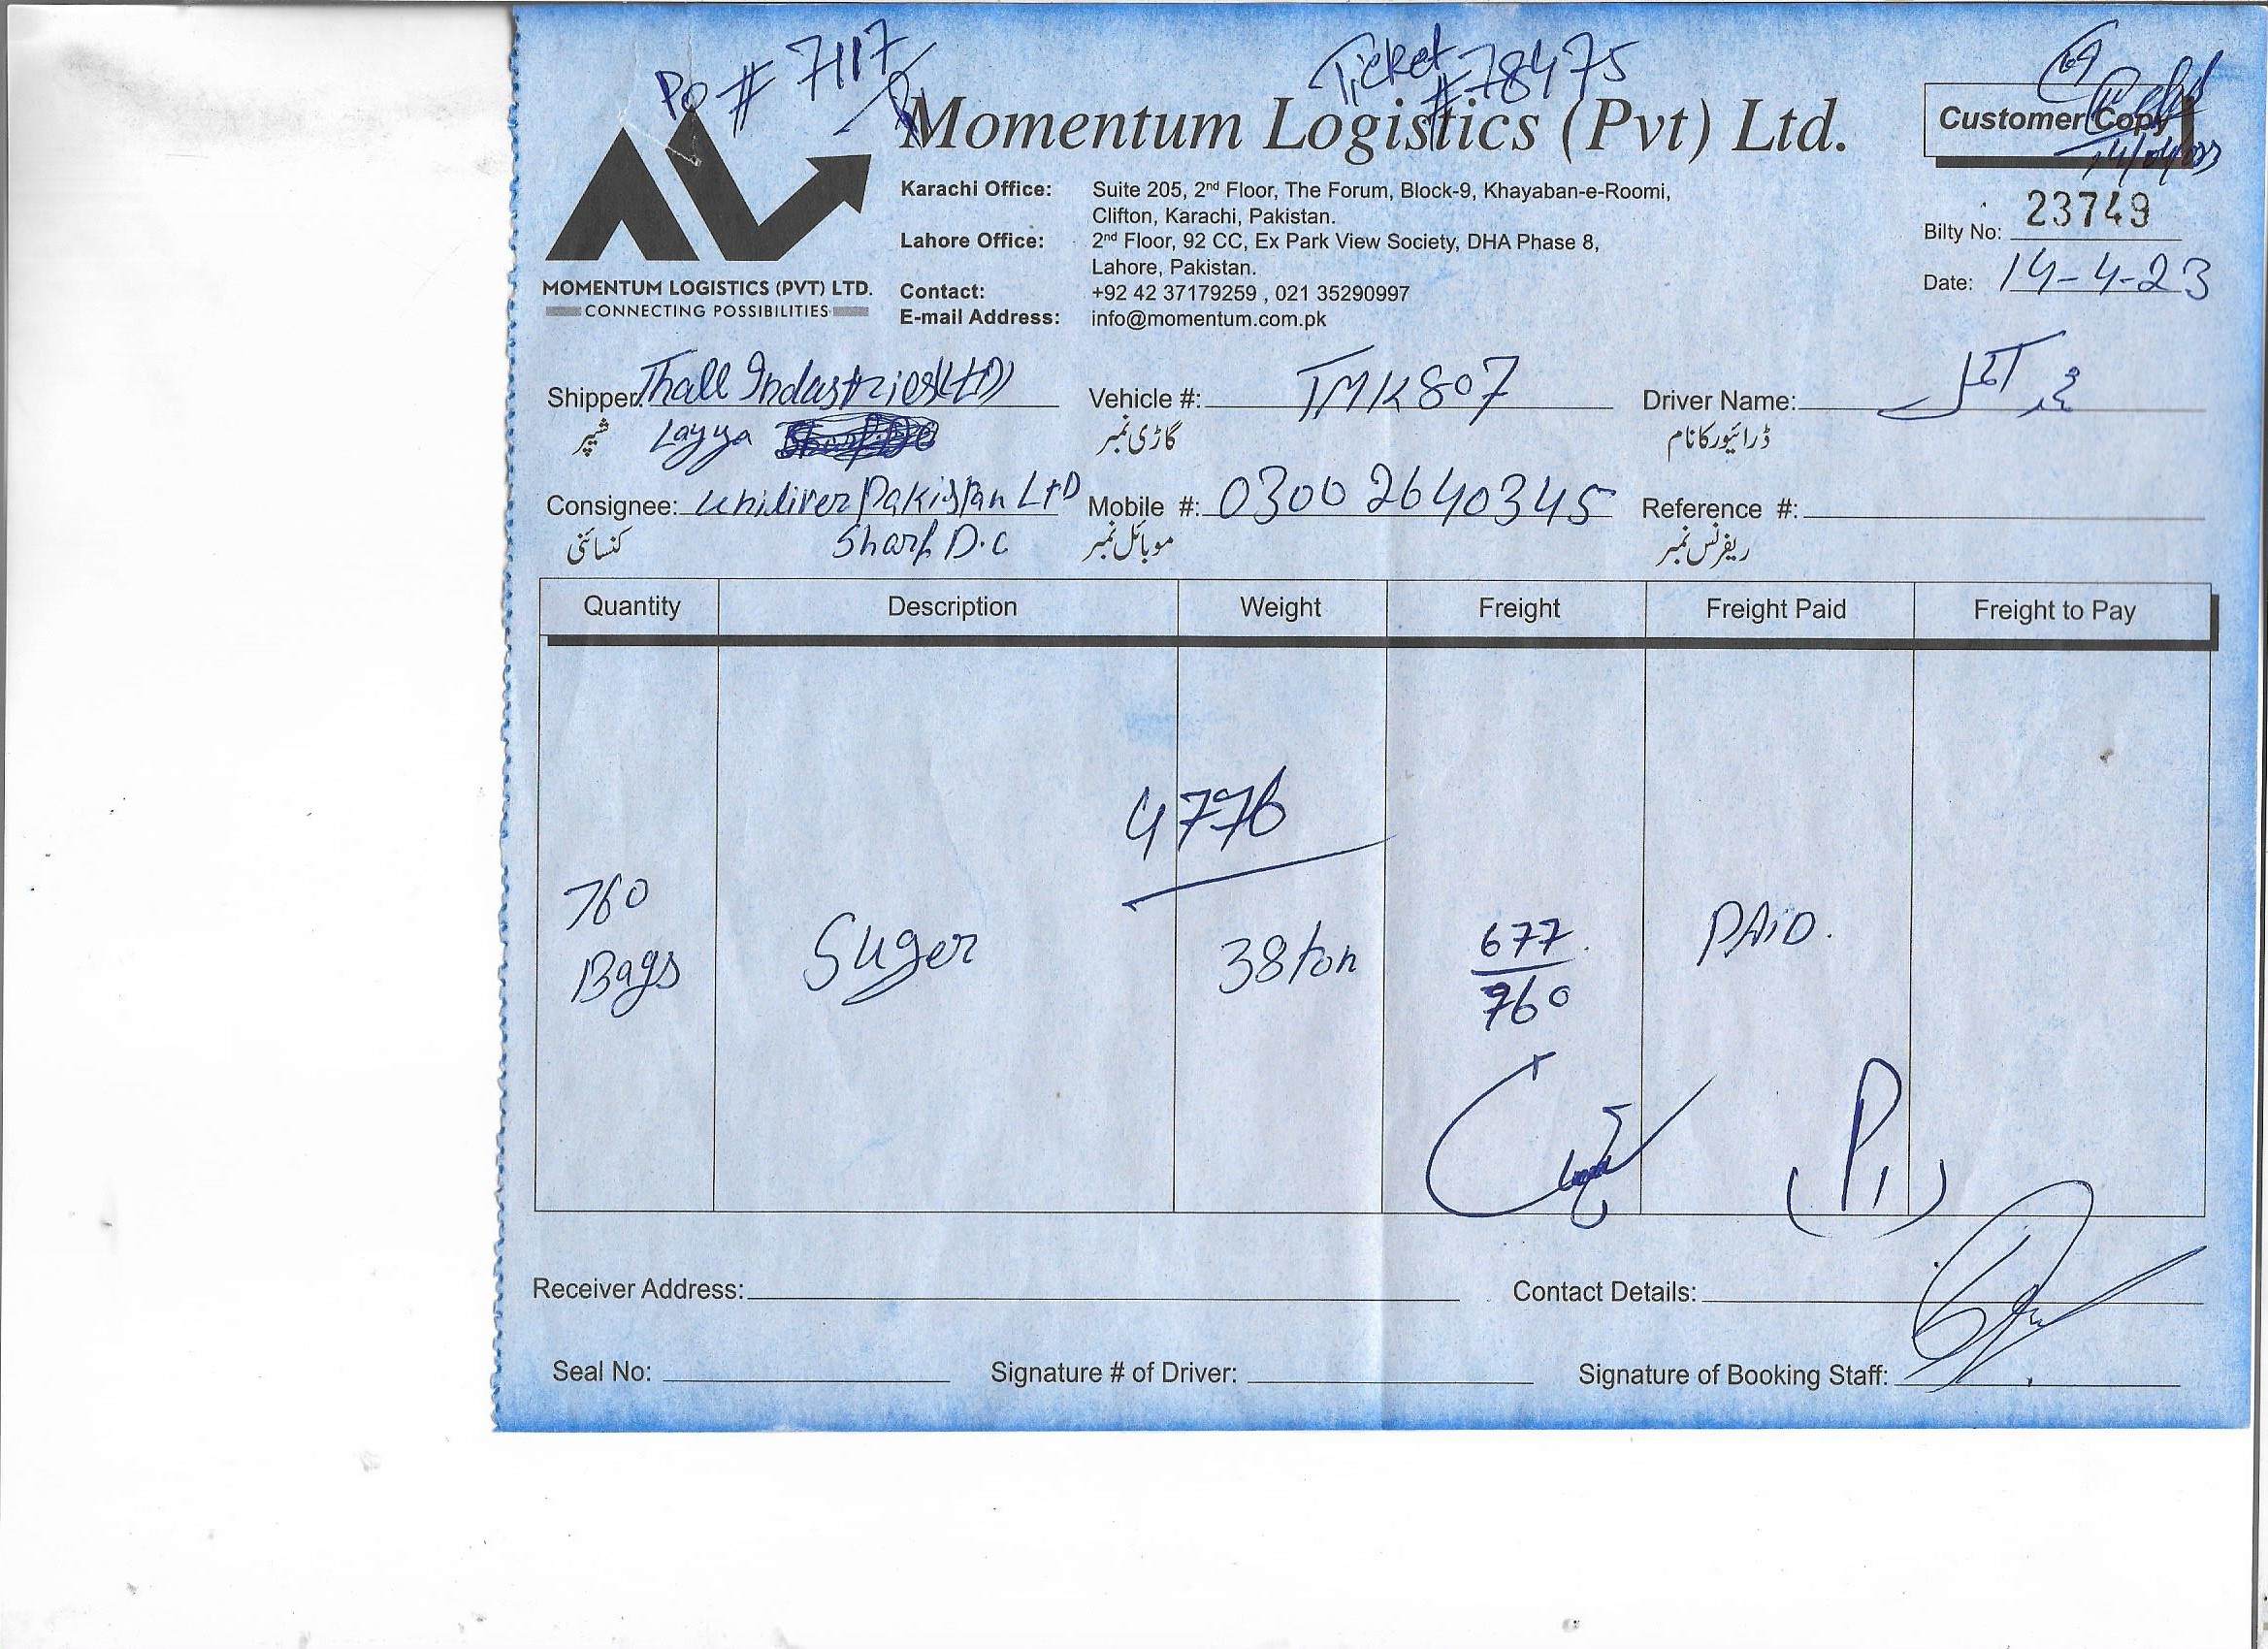 PO # 7117
Ticket
#78475
Momentum Logistics (Pvt) Ltd.
Customer Copy
14/04/023
MOMENTUM LOGISTICS (PVT) LTD.
CONNECTING POSSIBILITIES
Karachi Office: Suite 205, 2nd Floor, The Forum, Block-9, Khayaban-e-Roomi,
Clifton, Karachi, Pakistan.
Lahore Office: 2nd Floor, 92 CC, Ex Park View Society, DHA Phase 8,
Lahore, Pakistan.
Contact: +92 42 37179259 , 021 35290997
E-mail Address: info@momentum.com.pk
Bilty No: 23749
Date: 14-4-23
Shipper: Thall Industries (LTD) Vehicle #: TMK807 Driver Name:
شپر Layya گاڑی نمبر ڈرائیور کا نام
Consignee: Uniliver Pakistan LTD Mobile #: 0300 2640345 Reference #:
کنسائنی Sharf D.C موبائل نمبر ریفرنس نمبر
Quantity Description Weight Freight Freight Paid Freight to Pay
4776
760
Bags
Suger
38 ton
677
760
PAiD.
(P1)
Receiver Address: Contact Details:
Seal No: Signature # of Driver: Signature of Booking Staff: